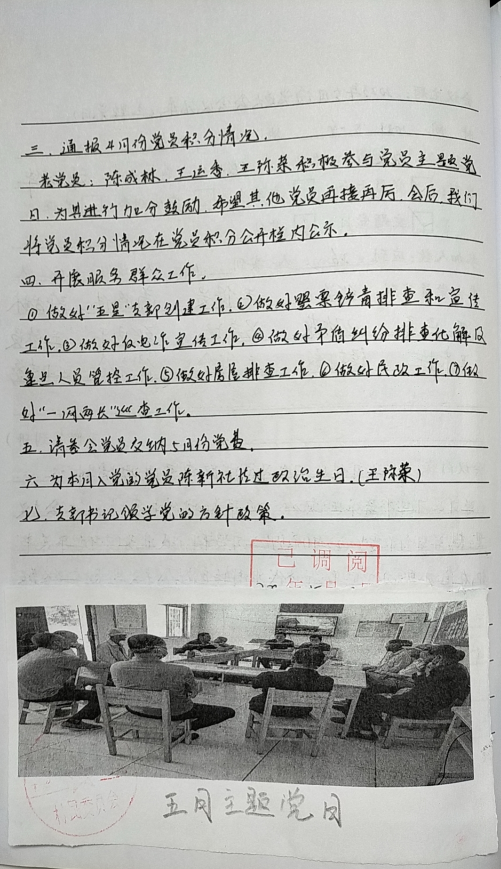 三、通报4月份党员积分情况。
老党员：陈成林、王运香、王珍荣积极参与党员主题党
日，为其进行加分鼓励，希望其他党员再接再后，会后，我们
将党员积分情况在党员积分公开栏内公示。
四、开展服务群众工作。
①做好"五星"支部创建工作，②做好罂粟铲青排查和宣传
工作，③做好反电诈宣传工作，④做好矛盾纠纷排查化解及
重点人员管控工作，⑤做好房屋排查工作，⑥做好民政工作，⑦做
好"一河两长"巡查工作。
五、请各位党员交纳5月份党费。
六、为本月入党的党员陈新社过政治生日。(王珍荣)
七、支部书记领学党的方针政策。
已调阅
五月主题党日